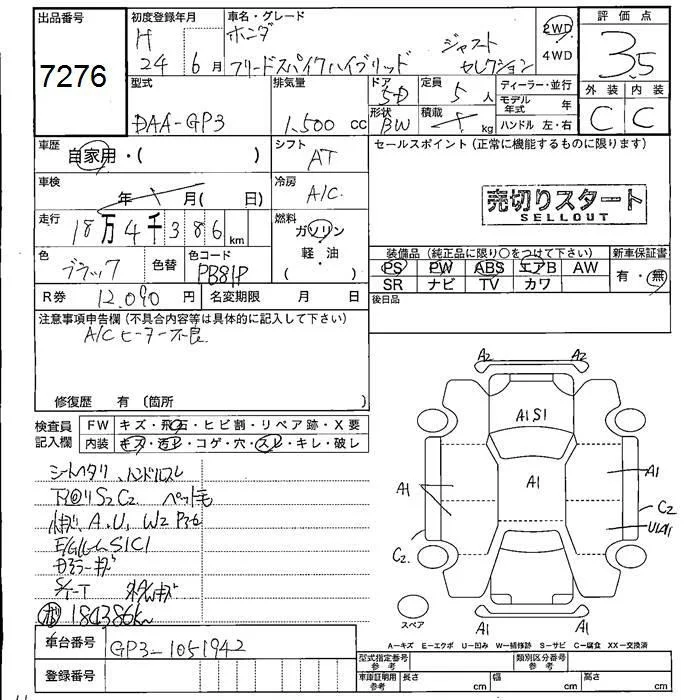 出品番号
7276
初度登録年月
H
24 6月
車名・グレード
ホンダ
フリードスパイクハイブリッド ジャスト
セレクション
2WD
4WD
評価点
3.5
外装 内装
C C
型式
DAA-GP3
排気量
1,500 cc
ドア
5D
形状
BW
定員
5人
積載
kg
ディーラー・並行
モデル年式 年
ハンドル 左・右
車歴
自家用・( )
シフト
AT
セールスポイント(正常に機能するものに限ります)
売切りスタート
SELLOUT
車検
年 月( 日)
冷房
A/C
走行
18万4千386km
燃料
ガソリン
軽・油
( )
色
ブラック
色替
色コード
PB81P
装備品(純正品に限り○をつけて下さい)
PS PW ABS エアB AW
SR ナビ TV カワ
新車保証書
有・無
R券 12,090円
名変期限 月 日
後日品
注意事項申告欄(不具合内容等は具体的に記入して下さい)
A/Cヒーター不良
修復歴 有(箇所 )
検査員
記入欄
FW キズ・飛石・ヒビ割・リペア跡・X要
内装 キズ・汚レ・コゲ・穴・スレ・キレ・破レ
シートヘタリ、ハンドルスレ
下回リS2C2 ペット毛
A.U,W2
S1C1
キズ
184386km
車台番号 GP3-1051942
登録番号
A2 A2
A1S1
A1
A1
A1
C2
U1A1
C2
A1 A1
スペア
A=キズ E=エクボ U=凹み W=補修跡 S=サビ C=腐食 XX=交換済
型式指定番号
参考
類別区分番号
参考
車庫証明用
参考
長さ cm 幅 cm 高さ cm